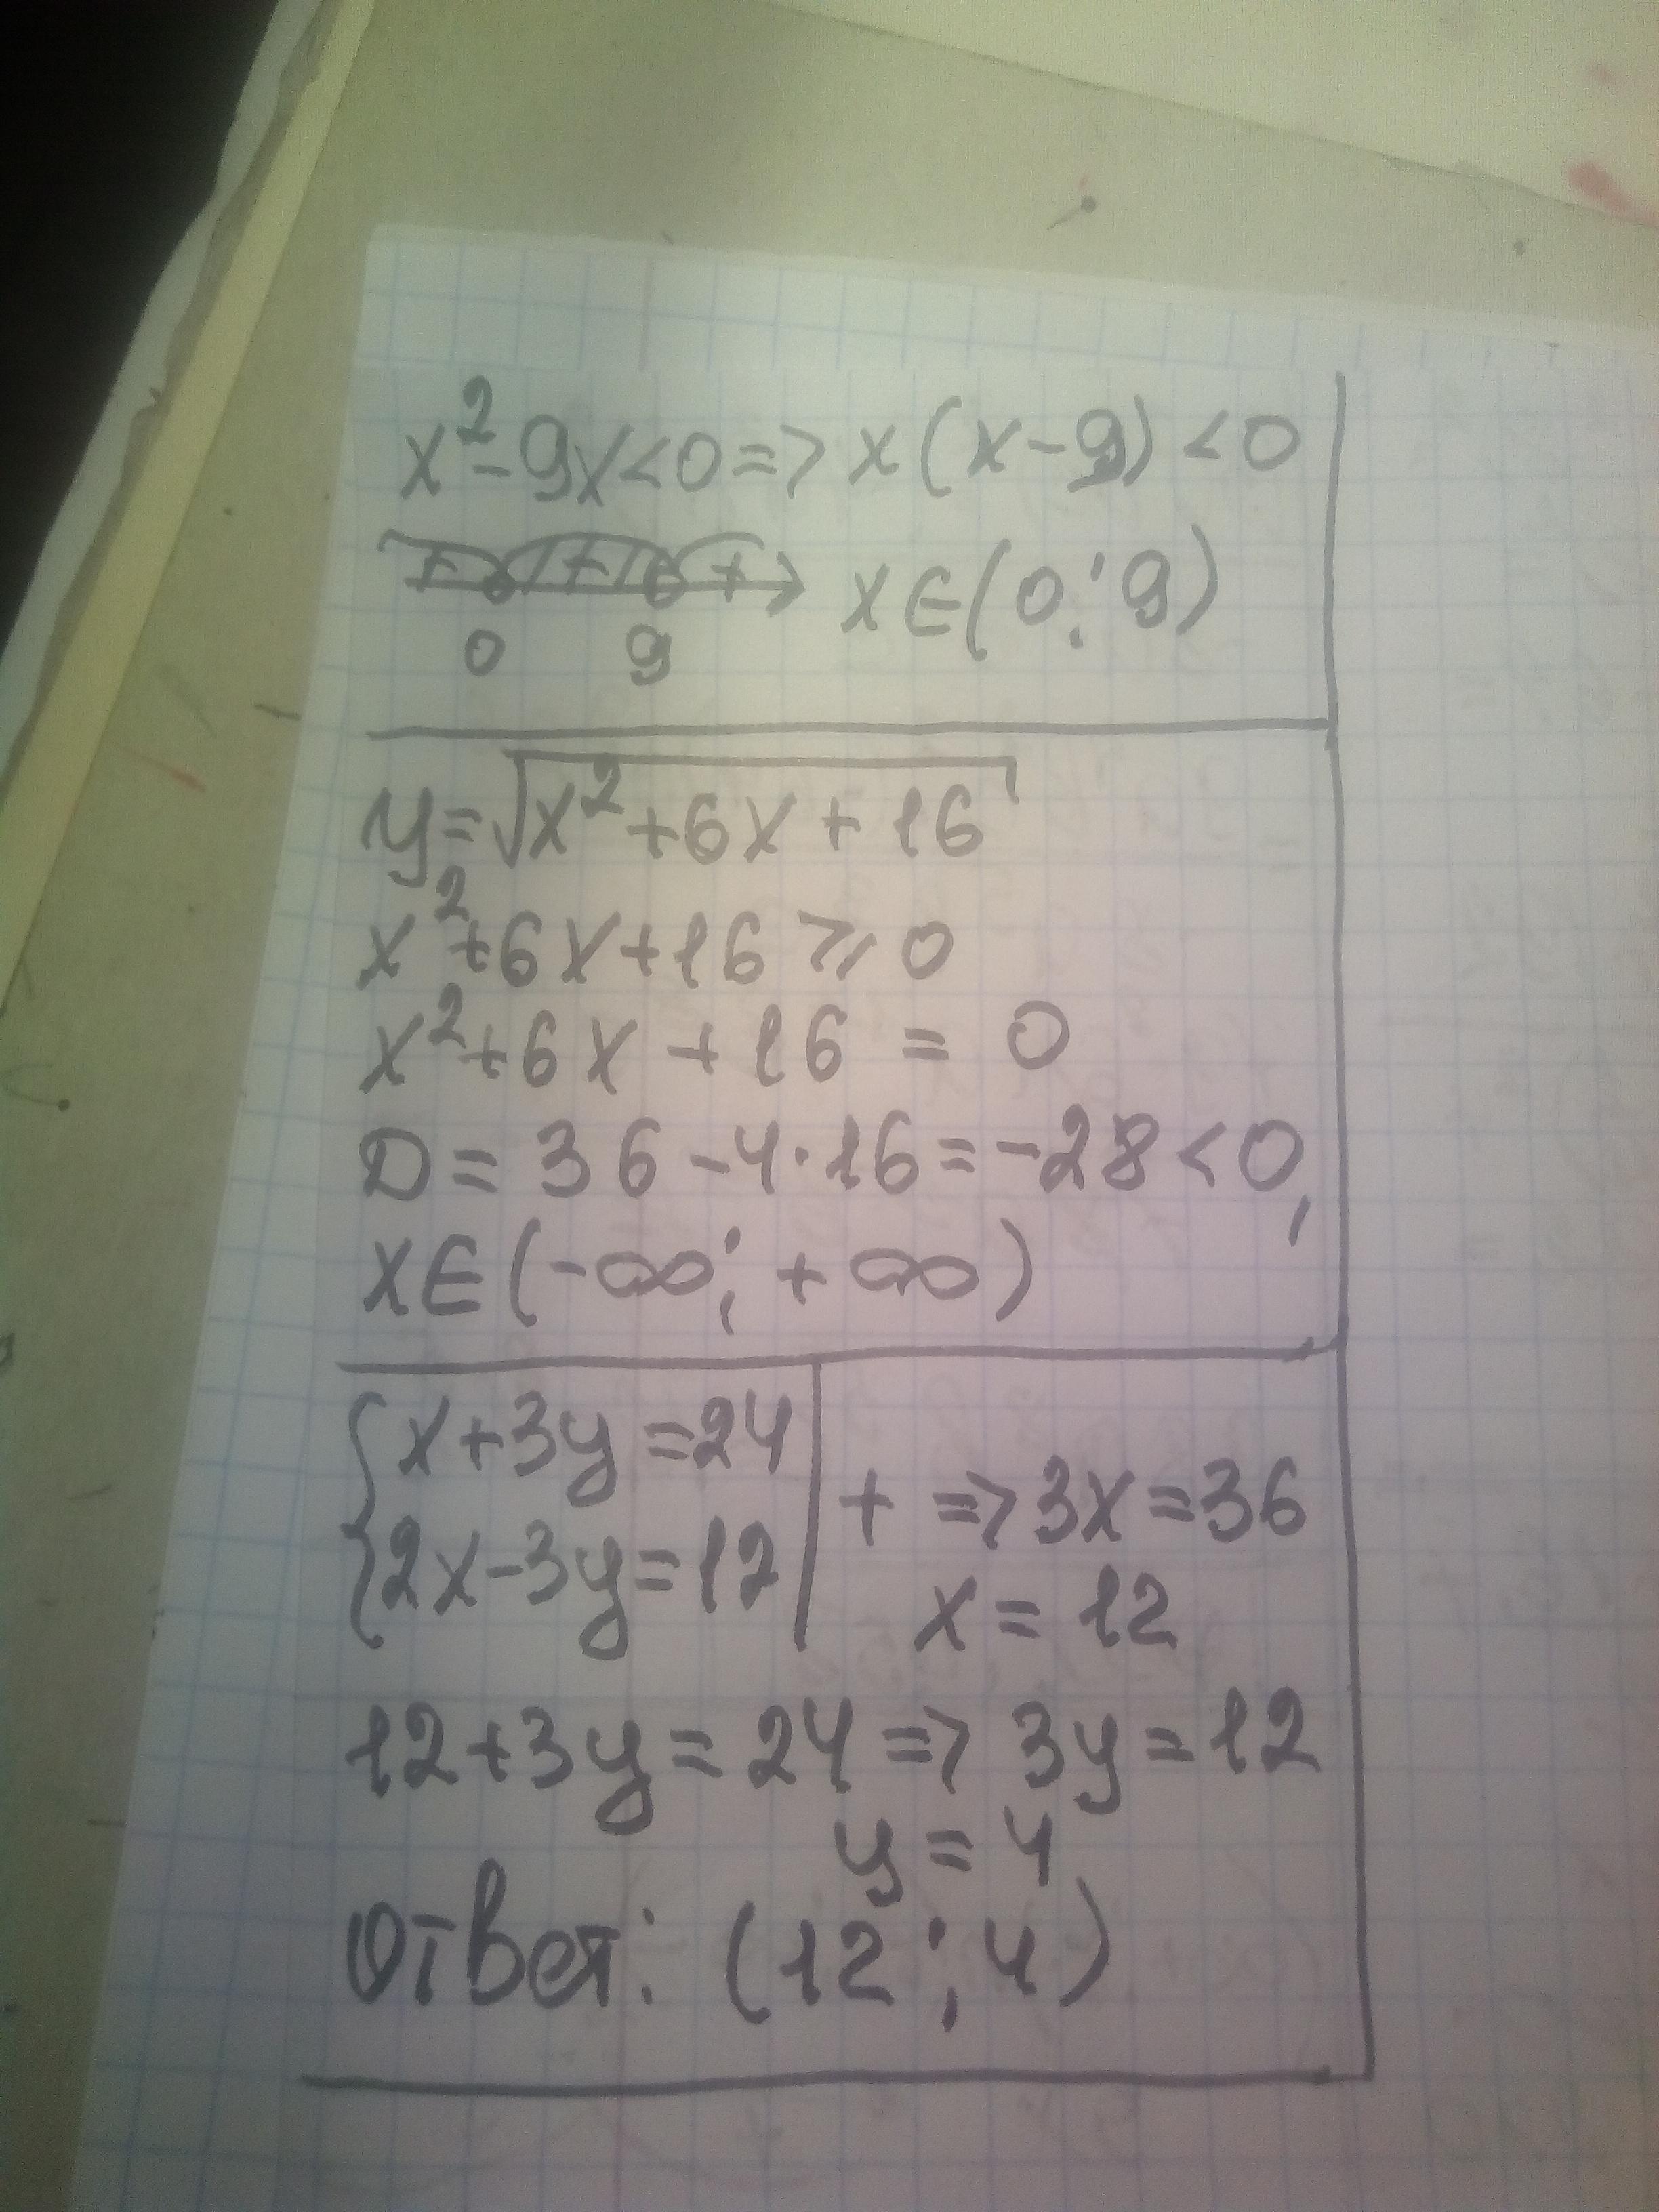 x²-9x<0=>x(x-9)<0
+ - +
0 9
x∈(0;9)
y=√x²+6x+16
x²+6x+16⩾0
x²+6x+16=0
D=36-4·16=-28<0,
x∈(-∞;+∞)
{x+3y=24
2x-3y=12
+ =>3x=36
x=12
12+3y=24=>3y=12
y=4
Ответ: (12;4)